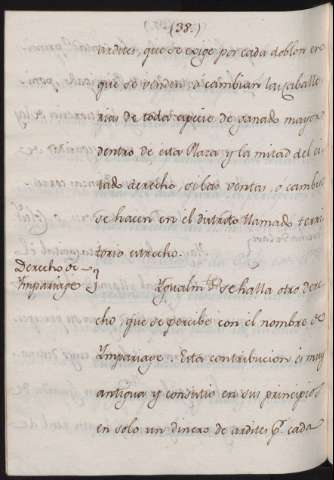 (38.)
ardites, que se exige por cada doblon en
que se venden, o cambian las caballe
rias de toda especie de ganado mayor
dentro de esta Plaza, y la mitad del ci
tado derecho, si las ventas, o cambios
se hacen en el distrito llamado terri
torio estrecho.
Derecho de
Ympariage
Ygualm.te se halla otro dere
cho, que se percibe con el nombre de
Ympariage. Esta contribucion es muy
antigua y consistio en sus principios
en solo un dinero de ardites p.r cada